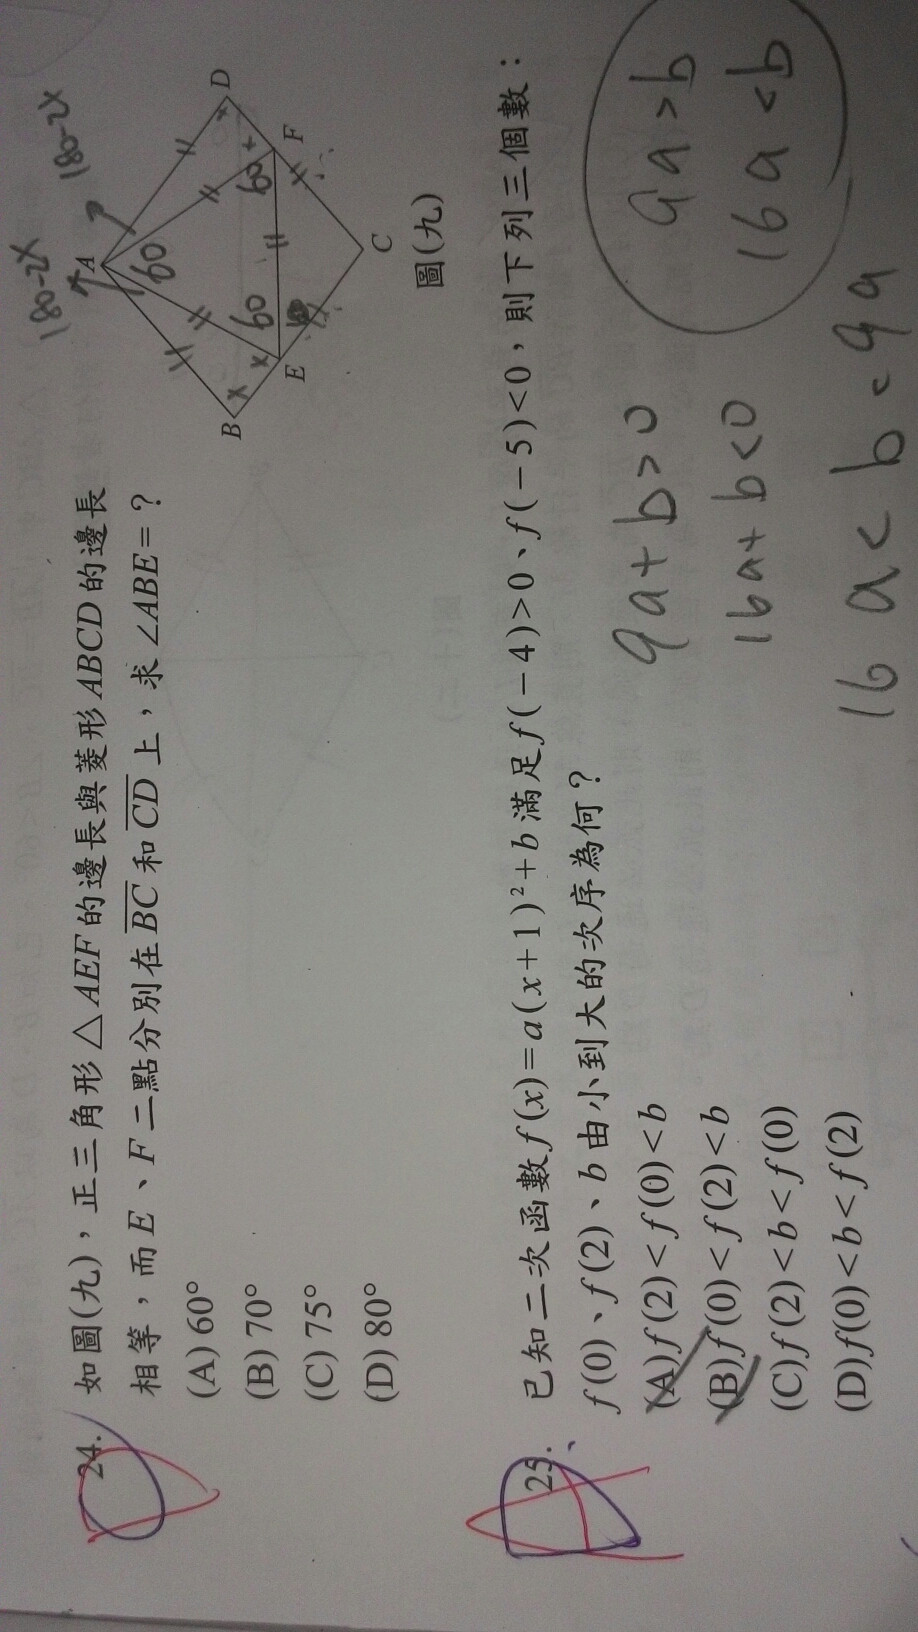 24. 如圖(九)，正三角形△AEF的邊長與菱形ABCD的邊長
相等，而E、F二點分別在BC和CD上，求∠ABE=？
(A) 60°
(B) 70°
(C) 75°
(D) 80°
180-2x
180-2x
A
D
60
x
B
x
60
60
x
E
F
C
圖(九)
25. 已知二次函數f(x)=a(x+1)²+b滿足f(-4)>0、f(-5)<0，則下列三個數：
f(0)、f(2)、b由小到大的次序為何？
(A)f(2)<f(0)<b
(B)f(0)<f(2)<b
(C)f(2)<b<f(0)
(D)f(0)<b<f(2)
9a+b>0
16a+b<0
16a<b<9a
9a>b
16a<b